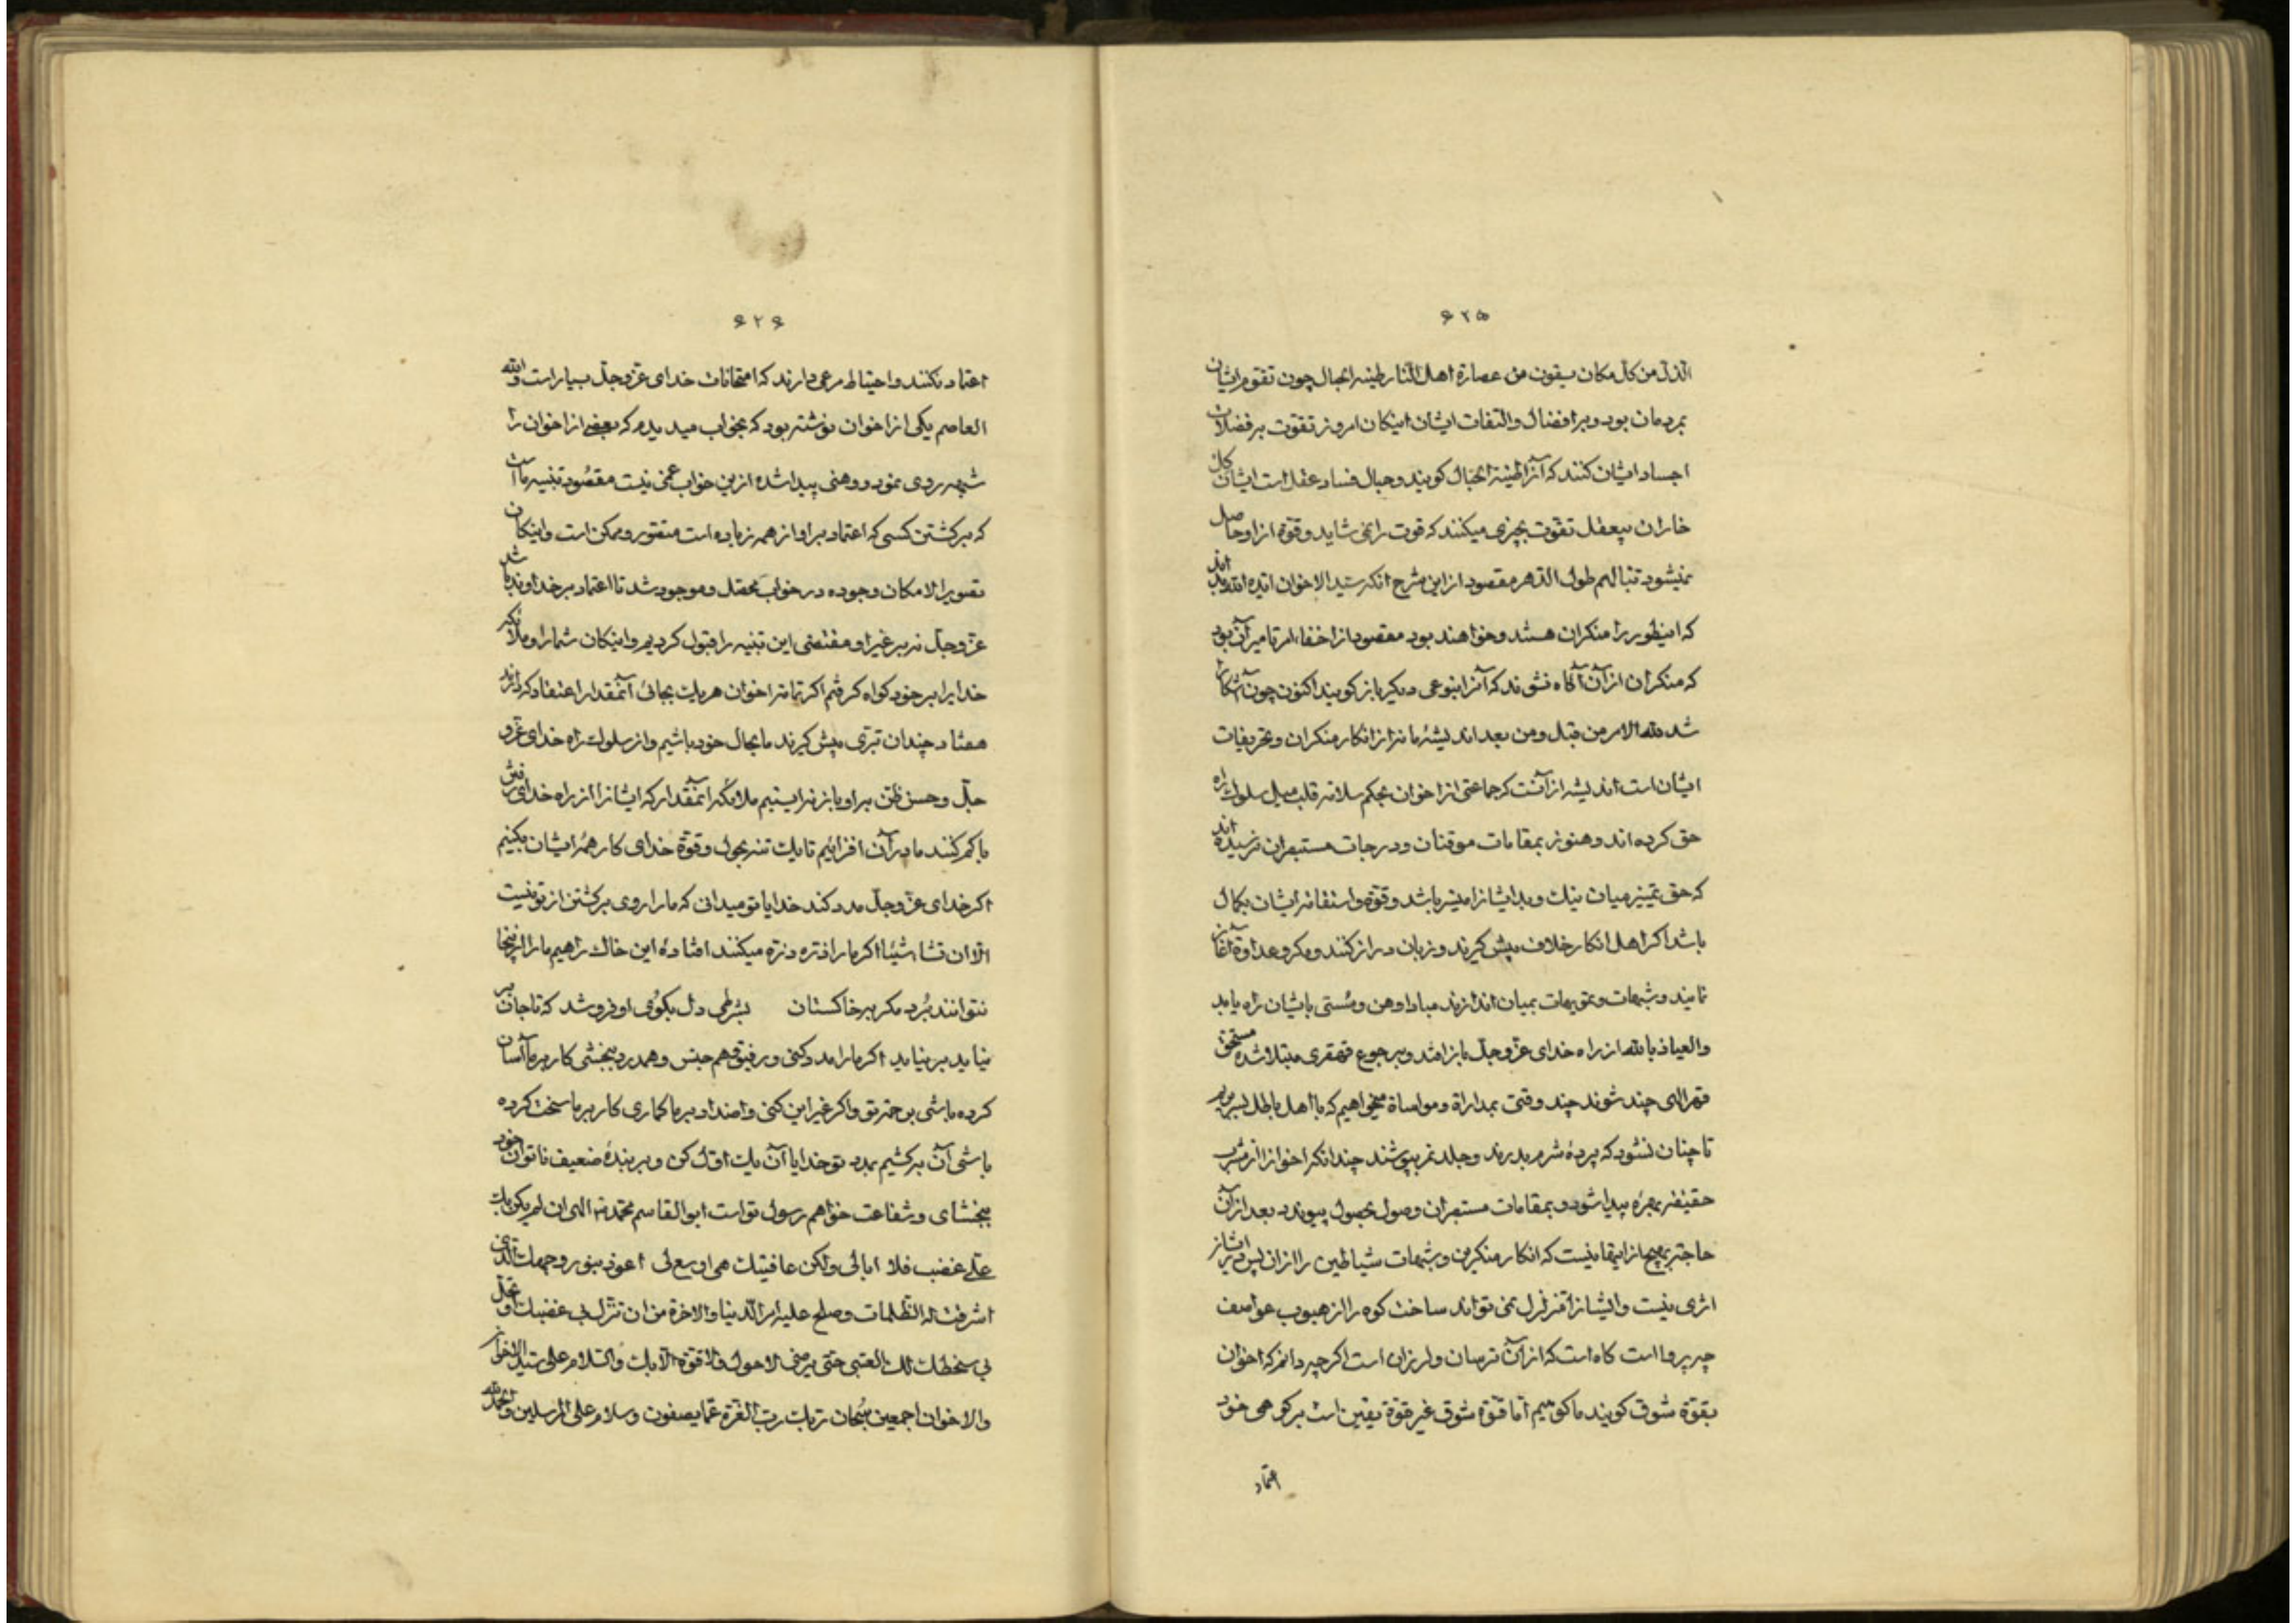 ۶۲۵
الذل من کل مکان یسقون من عصارة اهل النار طینة الخبال چون تقوم ایشان
بمردمان بود و بر افضال و التفات ایشان اینکان امروز تقوت بر فضلات
اجساد ایشان کنند که آنرا طینة الخبال گویند و خبال فساد عقل است ایشان کل
خاران بیعقل تقوت بچیزی میکنند که قوت را نمی شاید و قوة از او حاصل
نمیشود تبا لهم طول الدهر مقصود از این شرح آنکه سید الاخوان ایده الله
که اینطور را منکران هستند و خواهند بود مقصود از اخفاء امر تا میر آن بود
که منکران از آن آگاه نشوند که آنرا بنوعی دیگر باز گویند اکنون چون آشکارا
شد لله الامر من قبل و من بعد اندیشهٔ ما نه از انکار منکران و تحریفات
ایشان است اندیشه از آنست که جماعتی از اخوان بحکم سلامة قلب میل سلوک راه
حق کرده اند و هنوز بمقامات موقنان و درجات مستبصران نرسیده اند
که حق تمییز میان نیک و بد ایشانرا میسر باشد و قوة و استقامة ایشان بکمال
باشد اگر اهل انکار خلاف پیش گیرند و زبان دراز کنند و مکر و عداوة آغاز
نمایند و شبهات و تمویهات بمیان اندازند مبادا وهن و سستی بایشان راه یابد
والعیاذ بالله از راه خدای عز و جل بازافتد و برجوع قهقری مبتلا شده مستحق
قهر الهی چند شوند چند وقتی بمداراة و مواساة میخواهیم که با اهل باطل بسر بریم
تا چنان نشود که پردهٔ شرم بدرند و جلد نمر بپوشند چندانکه اخوانرا از مشرب
حقیقة بهرهٔ پیدا شود و بمقامات مستبصران وصول حصول پیوندد بعد از آن
حاجة بهیچ از اینها نیست که انکار منکرین و شبهات شیاطین را از آن پس در ایشان
اثری نیست و ایشانرا متزلزل نمی تواند ساخت کوه را از هبوب عواصف
چه پروا است کاه است که از آن ترسان و لرزان است اگر چه دانم که اخوان
بقوة شوق گویند ما کوهیم اما قوة شوق غیر قوة یقین است بر کوهی خود
اعتماد
۶۲۶
اعتماد نکنند و احتیاط مرعی دارند که امتحانات خدای عز و جل بسیار است والله
العاصم یکی از اخوان نوشته بود که بخواب میدیدم که بعضی از اخوان را
شبهه روی نمود و وهنی پیدا شده از این خواب عجبی نیست مقصود تنبیه ما است
که برگشتن کسی که اعتماد بر او از همه زیاده است متصور و ممکن است و اینکان
تصویر الامکان وجوده در خواب محصل و موجود شد تا اعتماد بر خداوند باشد
عز و جل نه بر غیر او مقتضی این تنبیه را قبول کردیم و اینکان شما را و ملائکه
خدایرا بر خود گواه گرفتم اگر تمامة اخوان هر یک بجائ آنمقدار اعتقاد که دارند
هفتاد چندان تبری پیش گیرند ما بحال خود باشیم و از سلوک راه خدای عز و
جل و حسن ظن بر او باز نه ایستیم ملائکه آنمقدار که ایشانرا از راه خدای رفتن
باکم کنند ما در آن افزائیم تا یک تنه بحول و قوة خدای کار همهٔ ایشان بکنیم
اگر خدای عز و جل مدد کند خدایا تو میدانی که ما را روی برگشتن از تو نیست
الا ان تشاء شیئا اگر ما را ذره ذره میکنند افتادهٔ این خاک راهیم ما را از اینجا
نتوانند بُرد مگر بر خاکستان    بشرطی دل بکوی او فرو شد که تا جان بر
نیاید برنیاید اگر ما را مدد کنی و رفیق و هم جنس و همدرد ببخشی کار بر ما آسان
کرده باشی برحمت تو و اگر غیر این کنی و اضداد بر ما گماری کار بر ما سخت کرده
باشی آن بر کشیم بمدد تو خدایا آن یک اول کن و بر بندهٔ ضعیف ناتوان خود
ببخشای و شفاعت خواهم رسول تو است ابوالقاسم محمد الهی ان لم یکن بک
علی غضب فلا ابالی ولکن عافیتک هی اوسع لی اعوذ بنور وجهک الذی
اشرقت له الظلمات و صلح علیه امر الدنیا والاخرة من ان تنزل بی غضبک او تحل
بی سخطک لک العتبی حتی ترضی لا حول ولا قوة الا بک والسلام علی سید الاخوان
والاخوان اجمعین سبحان ربک رب العزة عما یصفون وسلام علی المرسلین والحمد لله